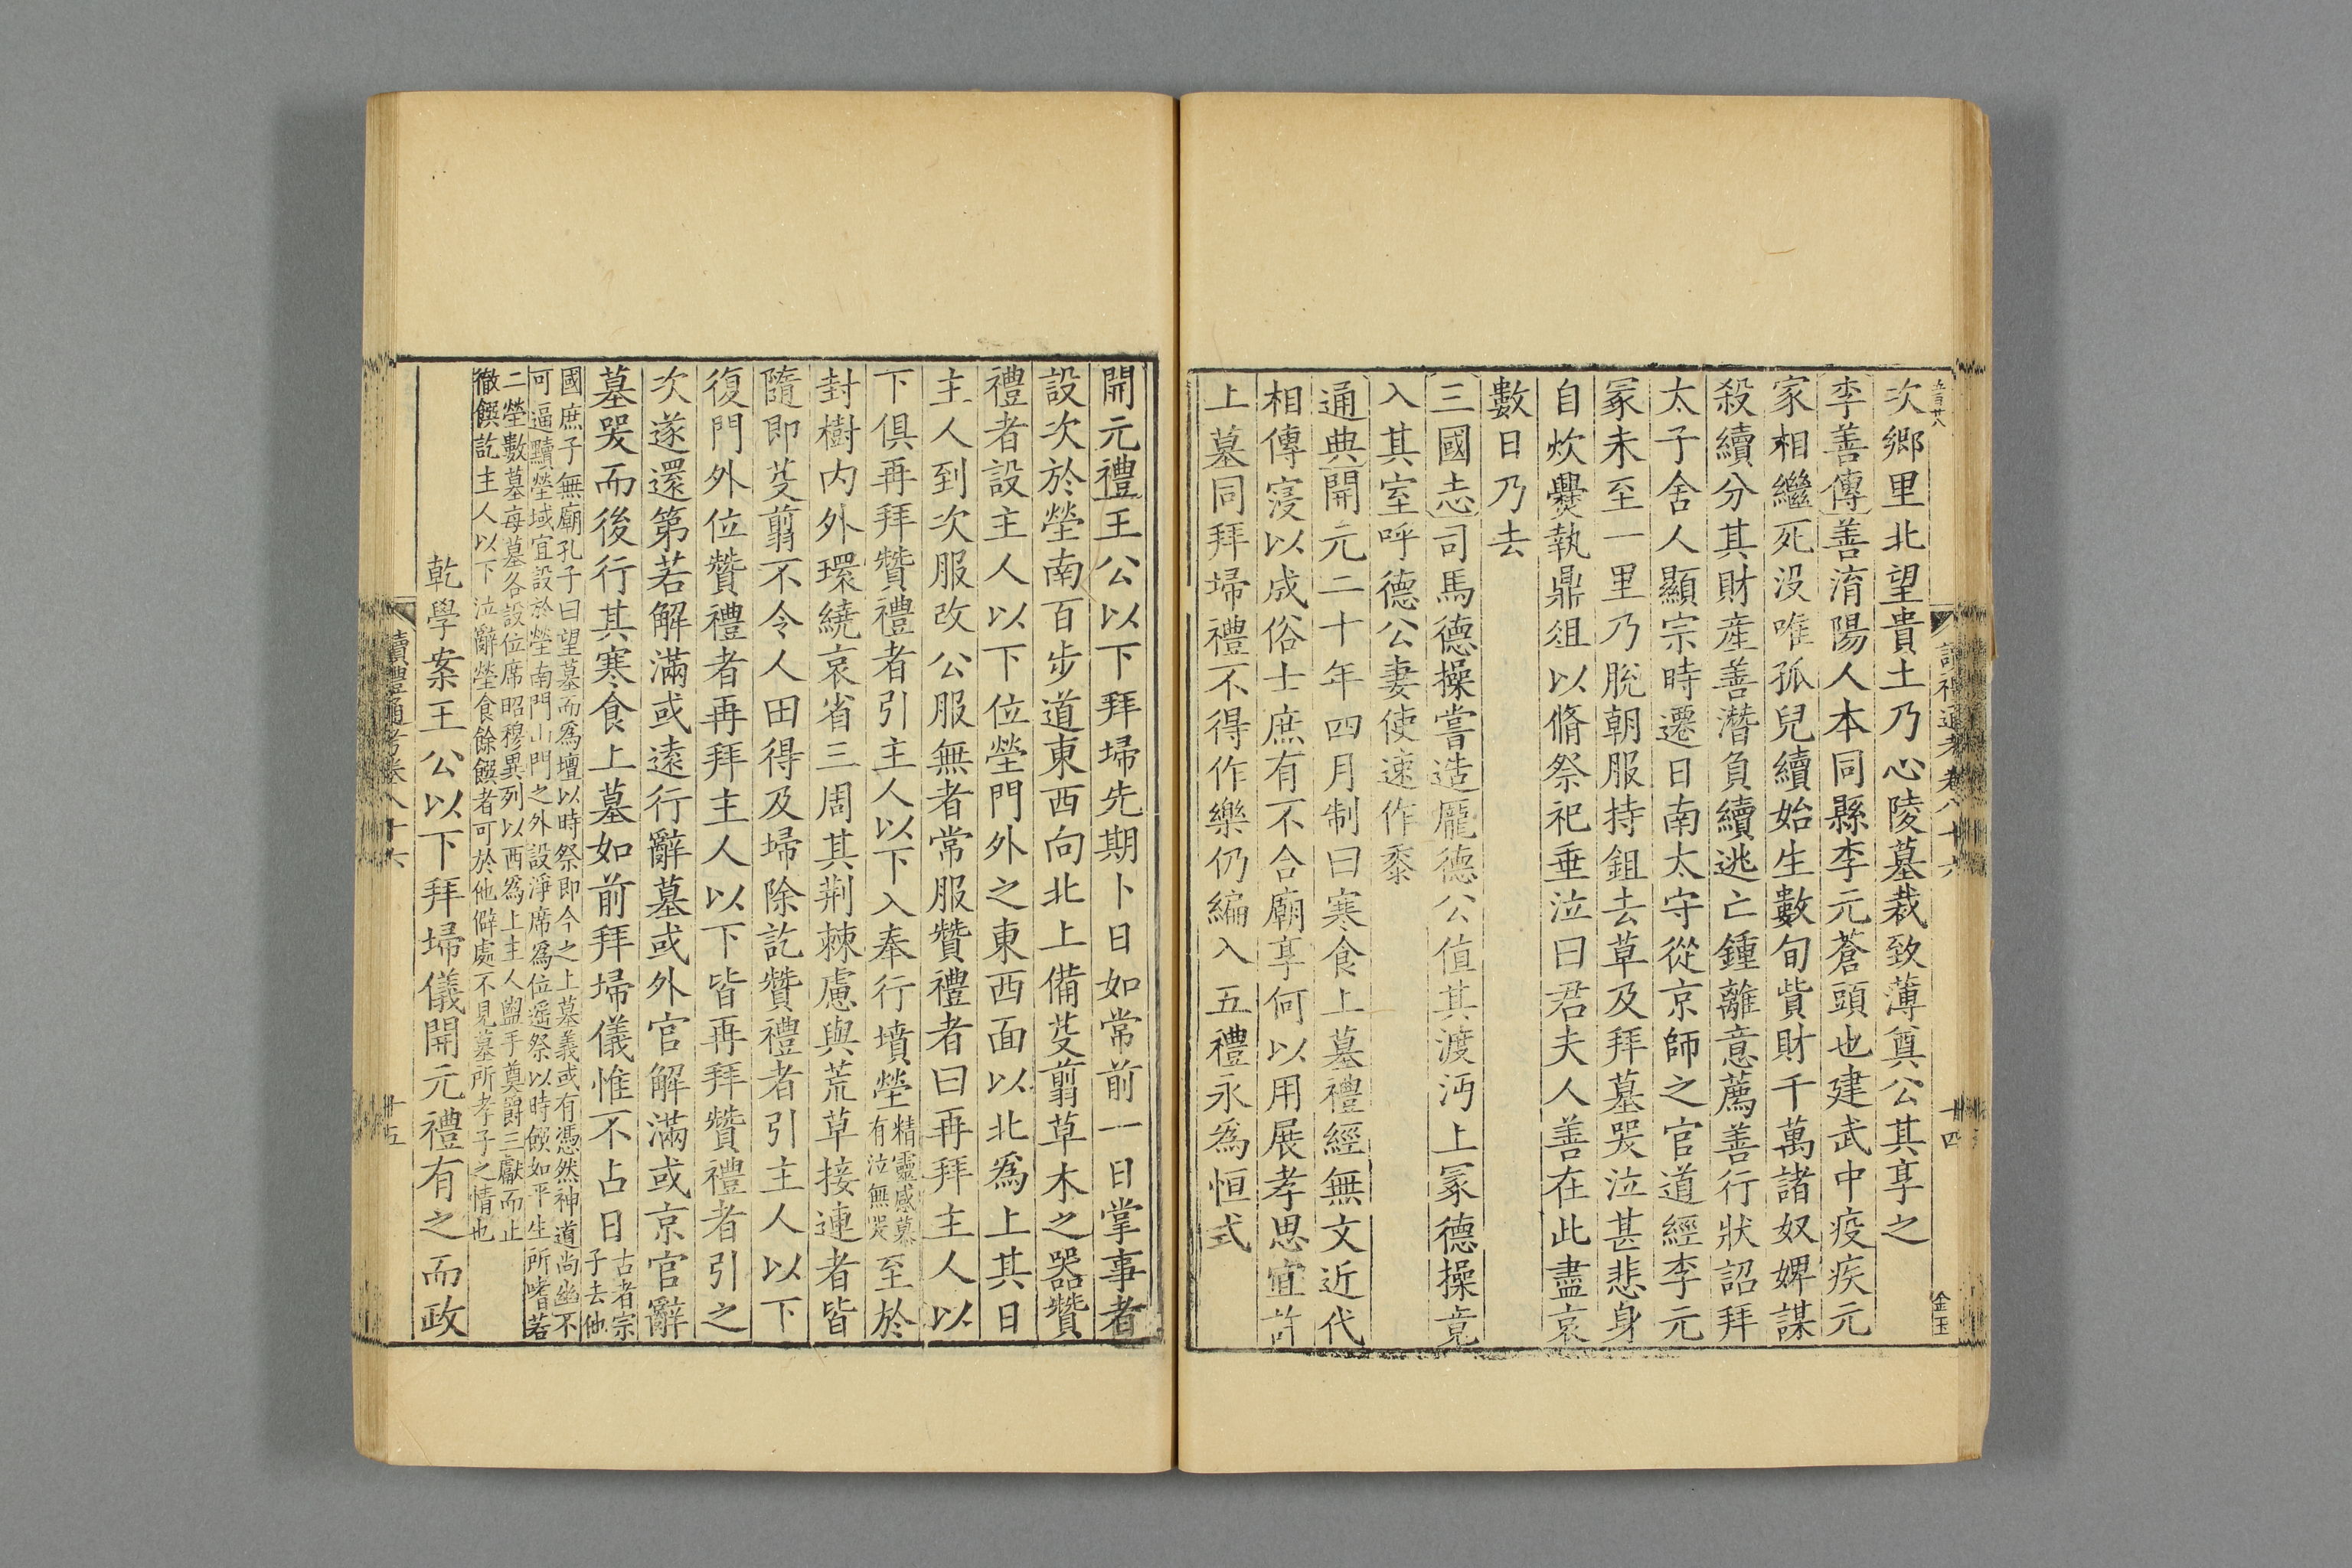 五百廿八
讀禮通考卷八十六
十四
金玉
次鄉里北望貴土乃心陵墓裁致薄奠公其享之
李善傳善淯陽人本同縣李元蒼頭也建武中疫疾元
家相繼死没唯孤兒續始生數旬貲財千萬諸奴婢謀
殺續分其財産善潛負續逃亡鍾離意薦善行狀詔拜
太子舍人顯宗時遷日南太守從京師之官道經李元
冢未至一里乃脫朝服持鉏去草及拜墓哭泣甚悲身
自炊爨執鼎俎以脩祭祀垂泣曰君夫人善在此盡哀
數日乃去
三國志司馬德操嘗造龐德公值其渡沔上冢德操竟
入其室呼德公妻使速作黍
通典開元二十年四月制曰寒食上墓禮經無文近代
相傳寖以成俗士庶有不合廟享何以用展孝思宜許
上墓同拜埽禮不得作樂仍編入五禮永為恒式
開元禮王公以下拜埽先期卜日如常前一日掌事者
設次於塋南百步道東西向北上備芟翦草木之器贊
禮者設主人以下位塋門外之東西面以北爲上其日
主人到次服改公服無者常服贊禮者曰再拜主人以
下俱再拜贊禮者引主人以下入奉行墳塋精靈感慕有泣無哭至於
封樹内外環繞哀省三周其荆棘慮與荒草接連者皆
隨即芟翦不令人田得及埽除訖贊禮者引主人以下
復門外位贊禮者再拜主人以下皆再拜贊禮者引之
次遂還第若解滿或遠行辭墓或外官解滿或京官辭
墓哭而後行其寒食上墓如前拜埽儀惟不占日古者宗子去他
國庶子無廟孔子曰望墓而爲壇以時祭即今之上墓義或有憑然神道尚幽不
可逼黷塋域宜設於塋南門山門之外設淨席爲位遥祭以時饌如平生所嗜若
二塋數墓每墓各設位席昭穆異列以西爲上主人盥手奠爵三獻而止
徹饌訖主人以下泣辭塋食餘饌者可於他僻處不見墓所孝子之情也
乾學案王公以下拜埽儀開元禮有之而政
讀禮通考卷八十六
十五